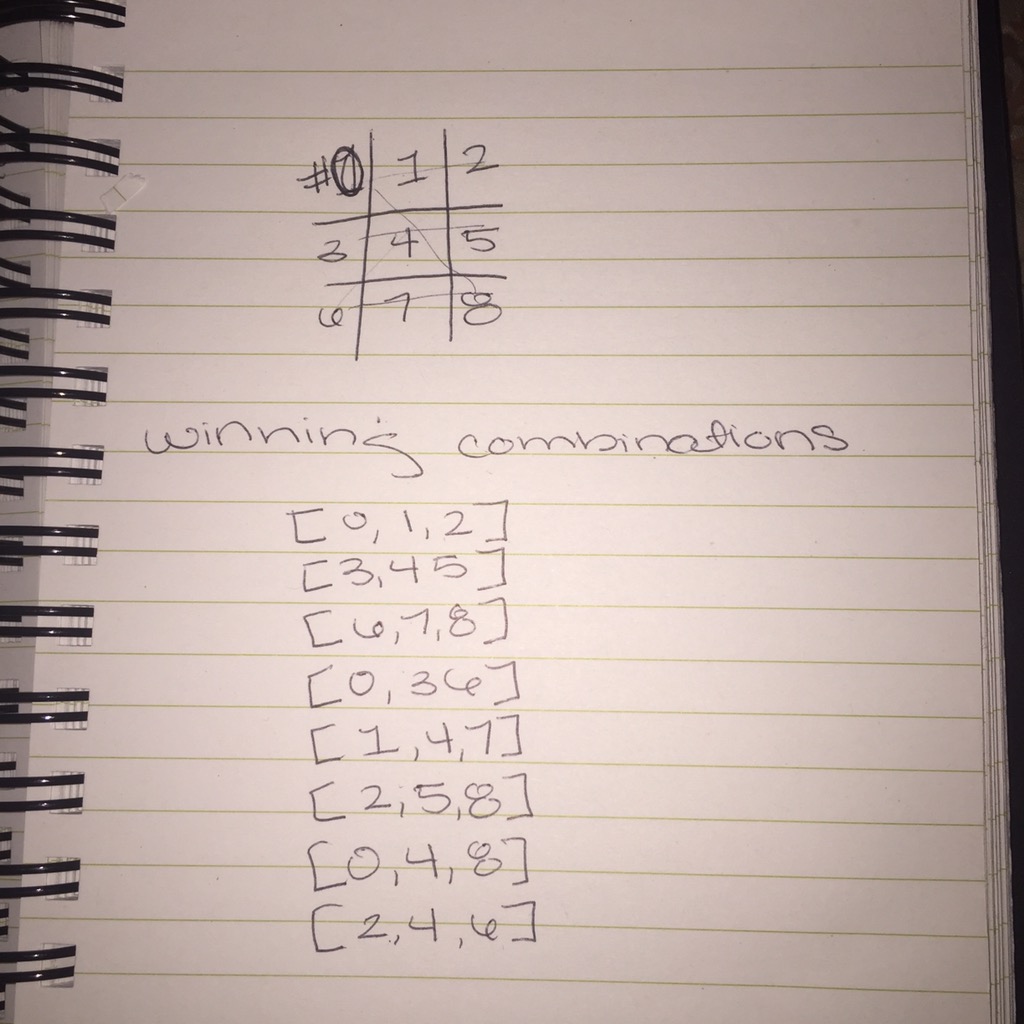 #0 1 2
3 4 5
6 7 8
winning combinations
[0, 1, 2]
[3, 4 5]
[6, 7, 8]
[0, 3 6]
[1, 4, 7]
[2, 5, 8]
[0, 4, 8]
[2, 4, 6]